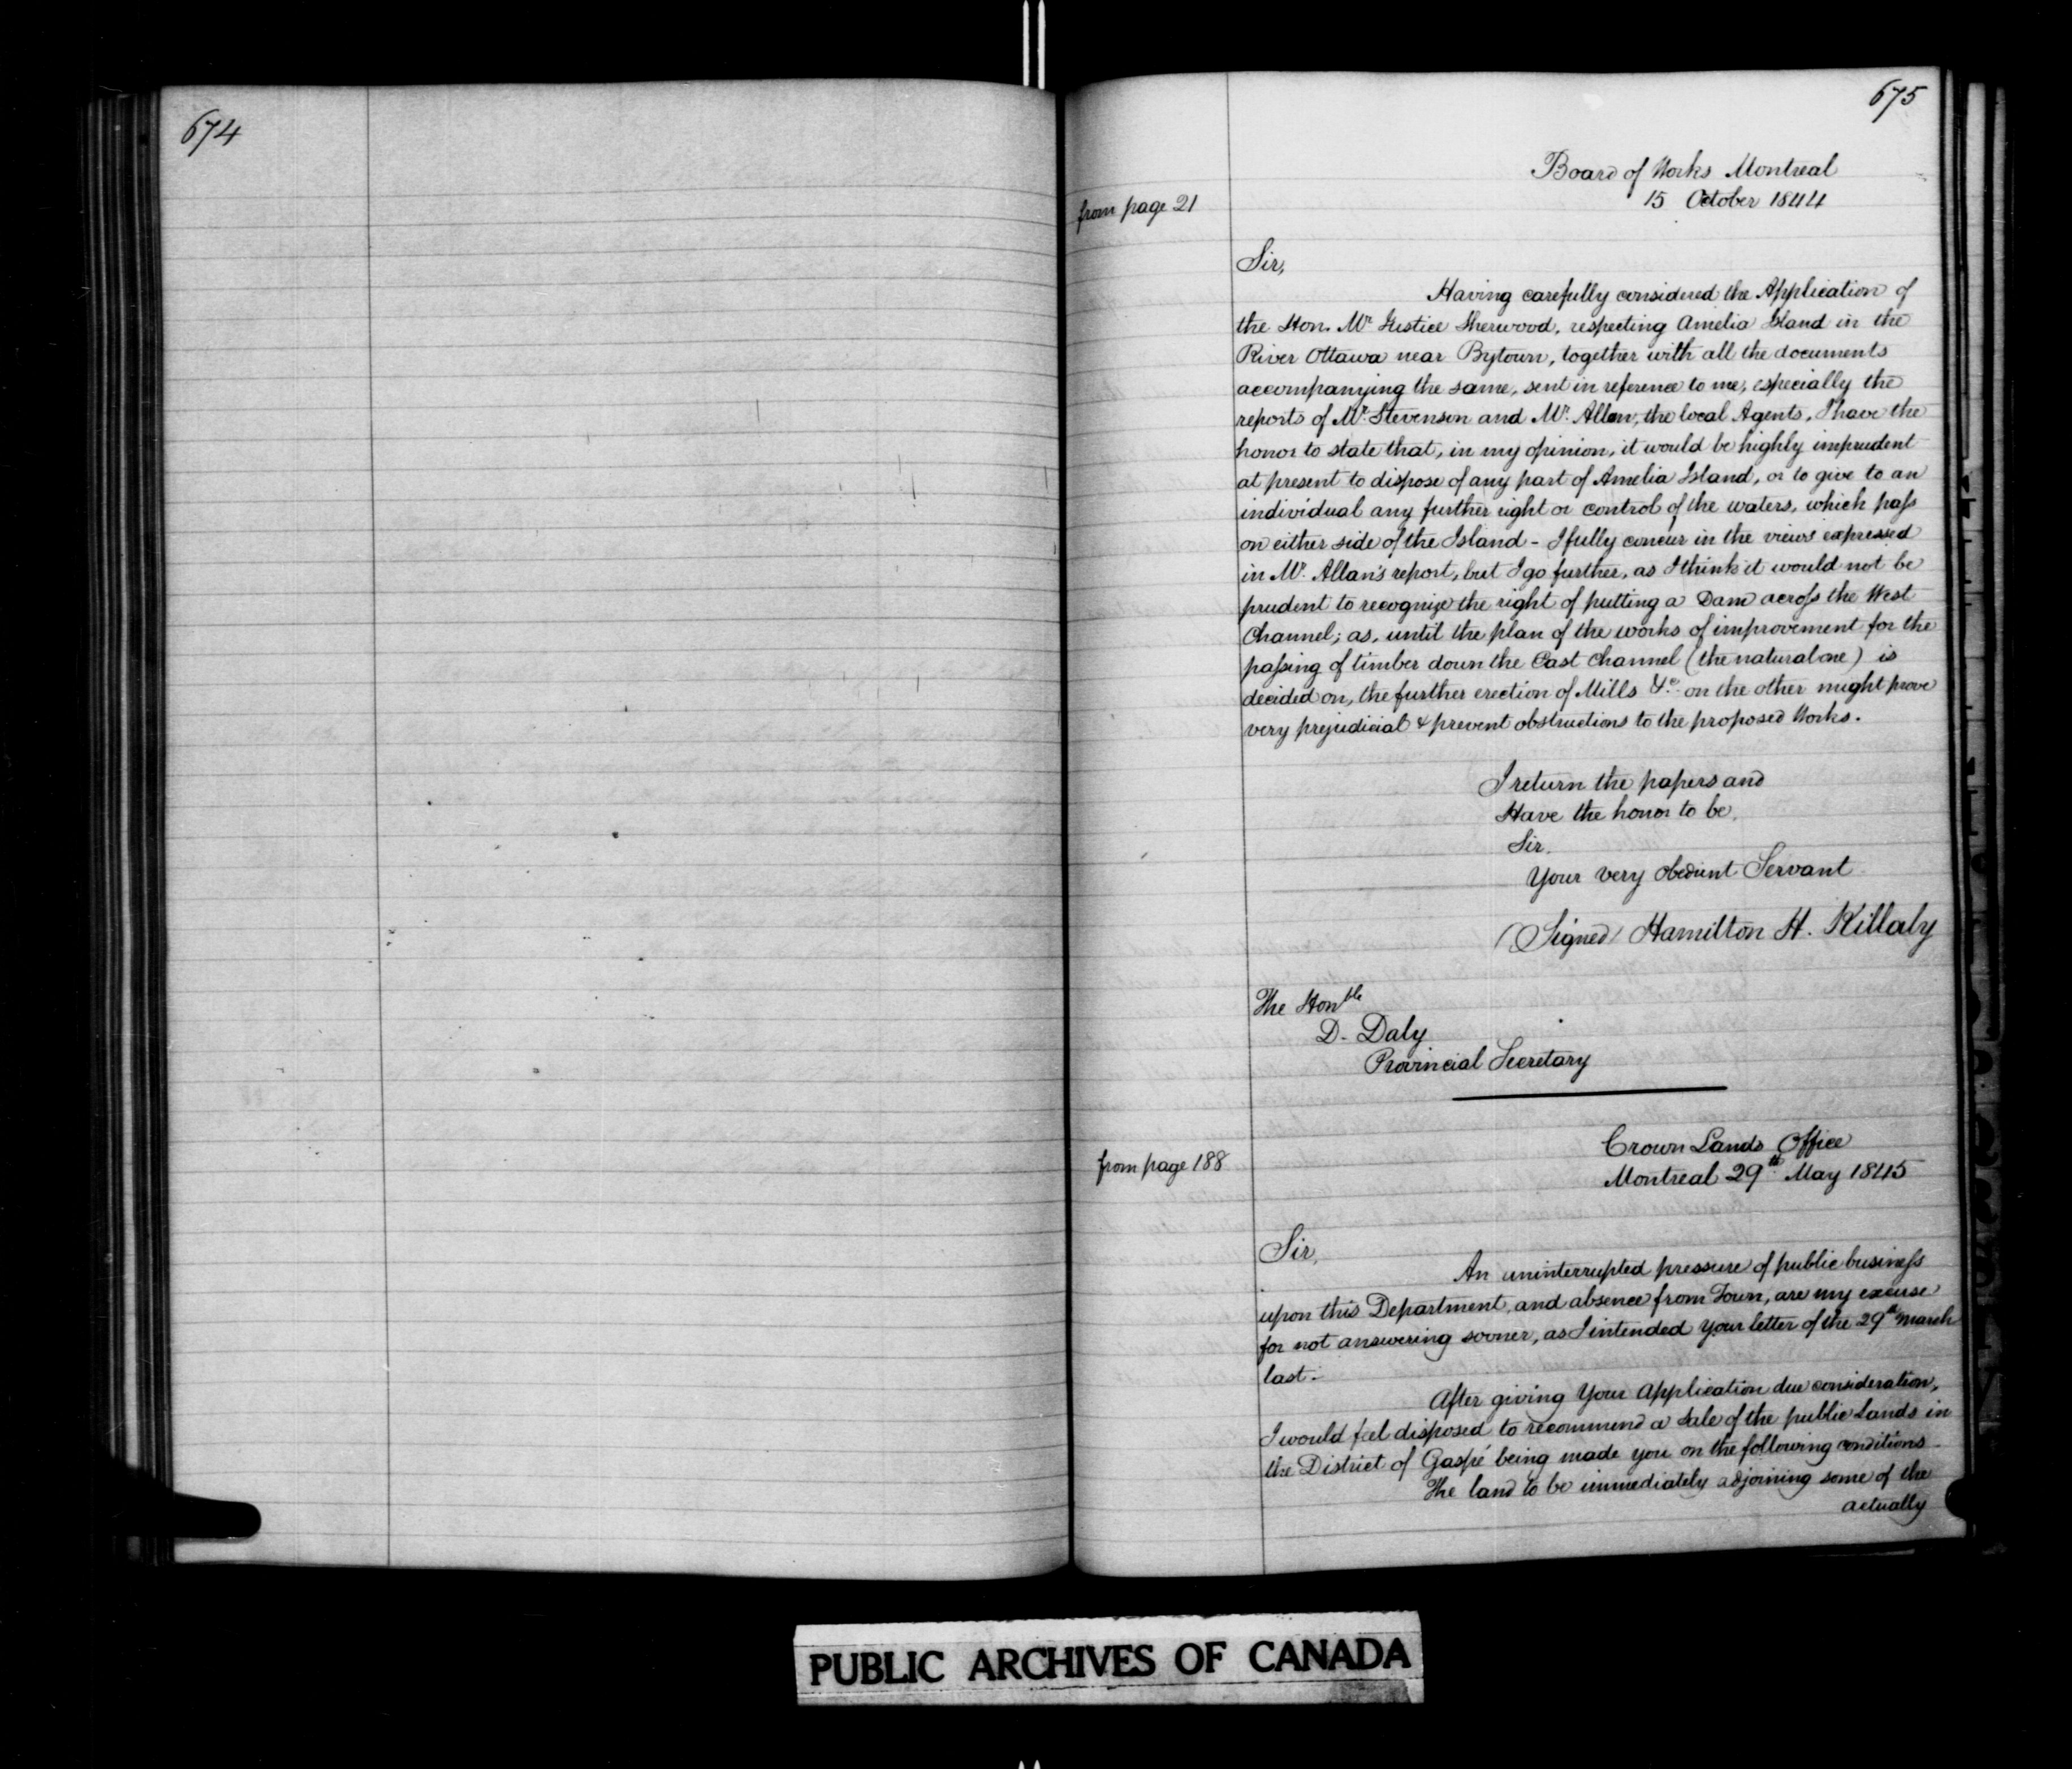 674
675
Board of Works Montreal
15 October 1844
from page 21
Sir,
Having carefully considered the Application of
the Hon. Mr Justice Sherwood, respecting Amelia Island in the
River Ottawa near Bytown, together with all the documents
accompanying the same, sent in reference to me, especially the
reports of Mr. Stevenson and Mr. Allan, the local Agents, I have the
honor to state that, in my opinion, it would be highly imprudent
at present to dispose of any part of Amelia Island, or to give to an
individual any further right or control of the waters, which pass
on either side of the Island - I fully concur in the views expressed
in Mr. Allan's report, but I go further, as I think it would not be
prudent to recognize the right of putting a Dam across the West
Channel; as, until the plan of the works of improvement for the
passing of timber down the East Channel (the natural one) is
decided on, the further erection of Mills &c. on the other might prove
very prejudicial & prevent obstructions to the proposed Works.
I return the papers and
Have the honor to be,
Sir.
Your very obedient Servant
(Signed) Hamilton H. Killaly
The Honble
D. Daly
Provincial Secretary
Crown Lands Office
from page 188
Montreal 29th May 1845
Sir,
An uninterrupted pressure of public business
upon this Department, and absence from Town, are my excuse
for not answering sooner, as I intended your letter of the 29th March
last.
After giving Your Application due consideration,
I would feel disposed to recommend a Sale of the public Lands in
the District of Gaspé being made you on the following conditions
The land to be immediately adjoining some of the
actually
PUBLIC ARCHIVES OF CANADA